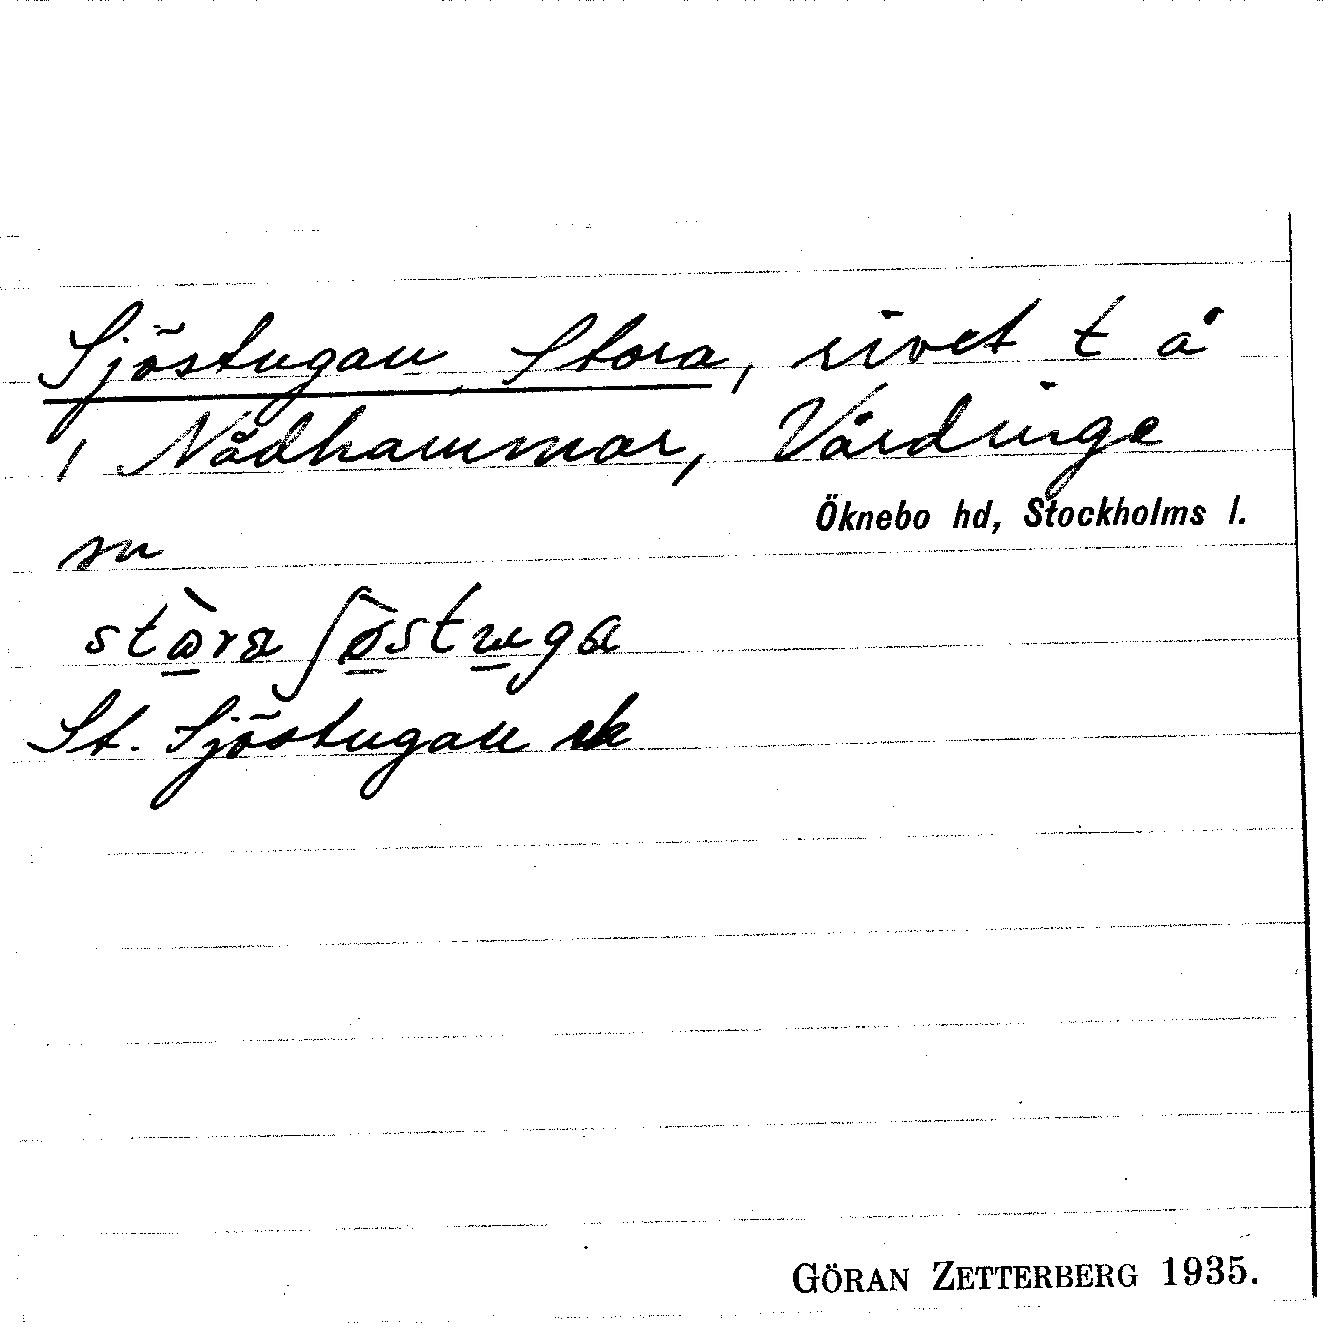 Sjöstugan, Stora, rivet t å
1 Nådhammar, Vårdinge
Öknebo hd, Stockholms l.
sn
stòra ʃø̀stuga
St. Sjöstugan ek
GÖRAN ZETTERBERG 1935.